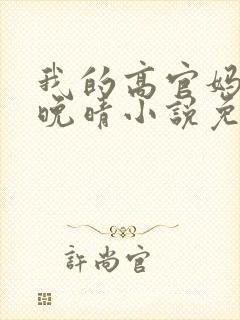 我的高官妈
晚晴小说免
許尚官